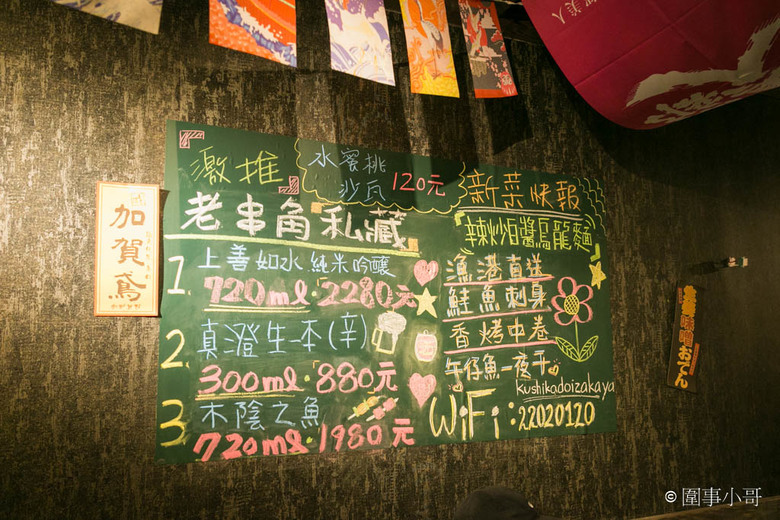 激推
水蜜桃
沙瓦 120元
老串角『私藏』
1. 上善如水 純米吟釀
720ml・2280元
2. 真澄生一本(辛)
300ml・880元
3. 木陰之魚
720ml・1980元
新菜快報
辣炒白醬烏龍麵
漁港直送
鮭魚刺身
香烤中卷
午仔魚一夜干
kushikadoizakaya
WiFi:22020120
加賀鳶
味噌おでん
美人
© 圍事小哥